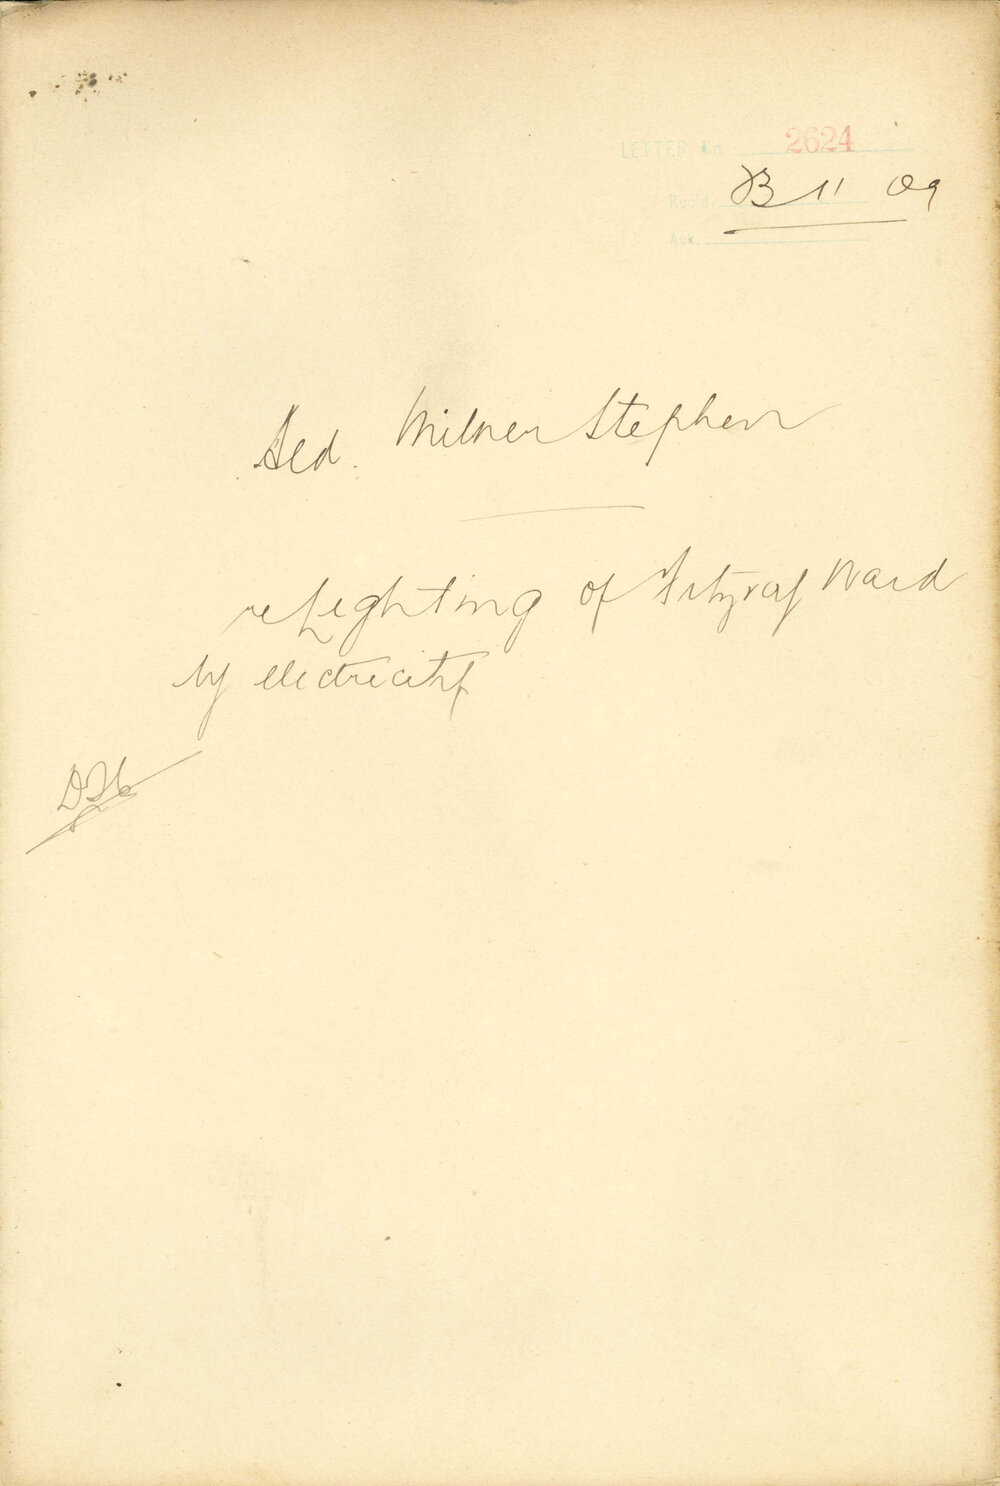 LETTER No. 2624
Rec'd. 23 11 09
Ack.
Milner Stephen
re Lighting of Fitzroy Ward
by electricity